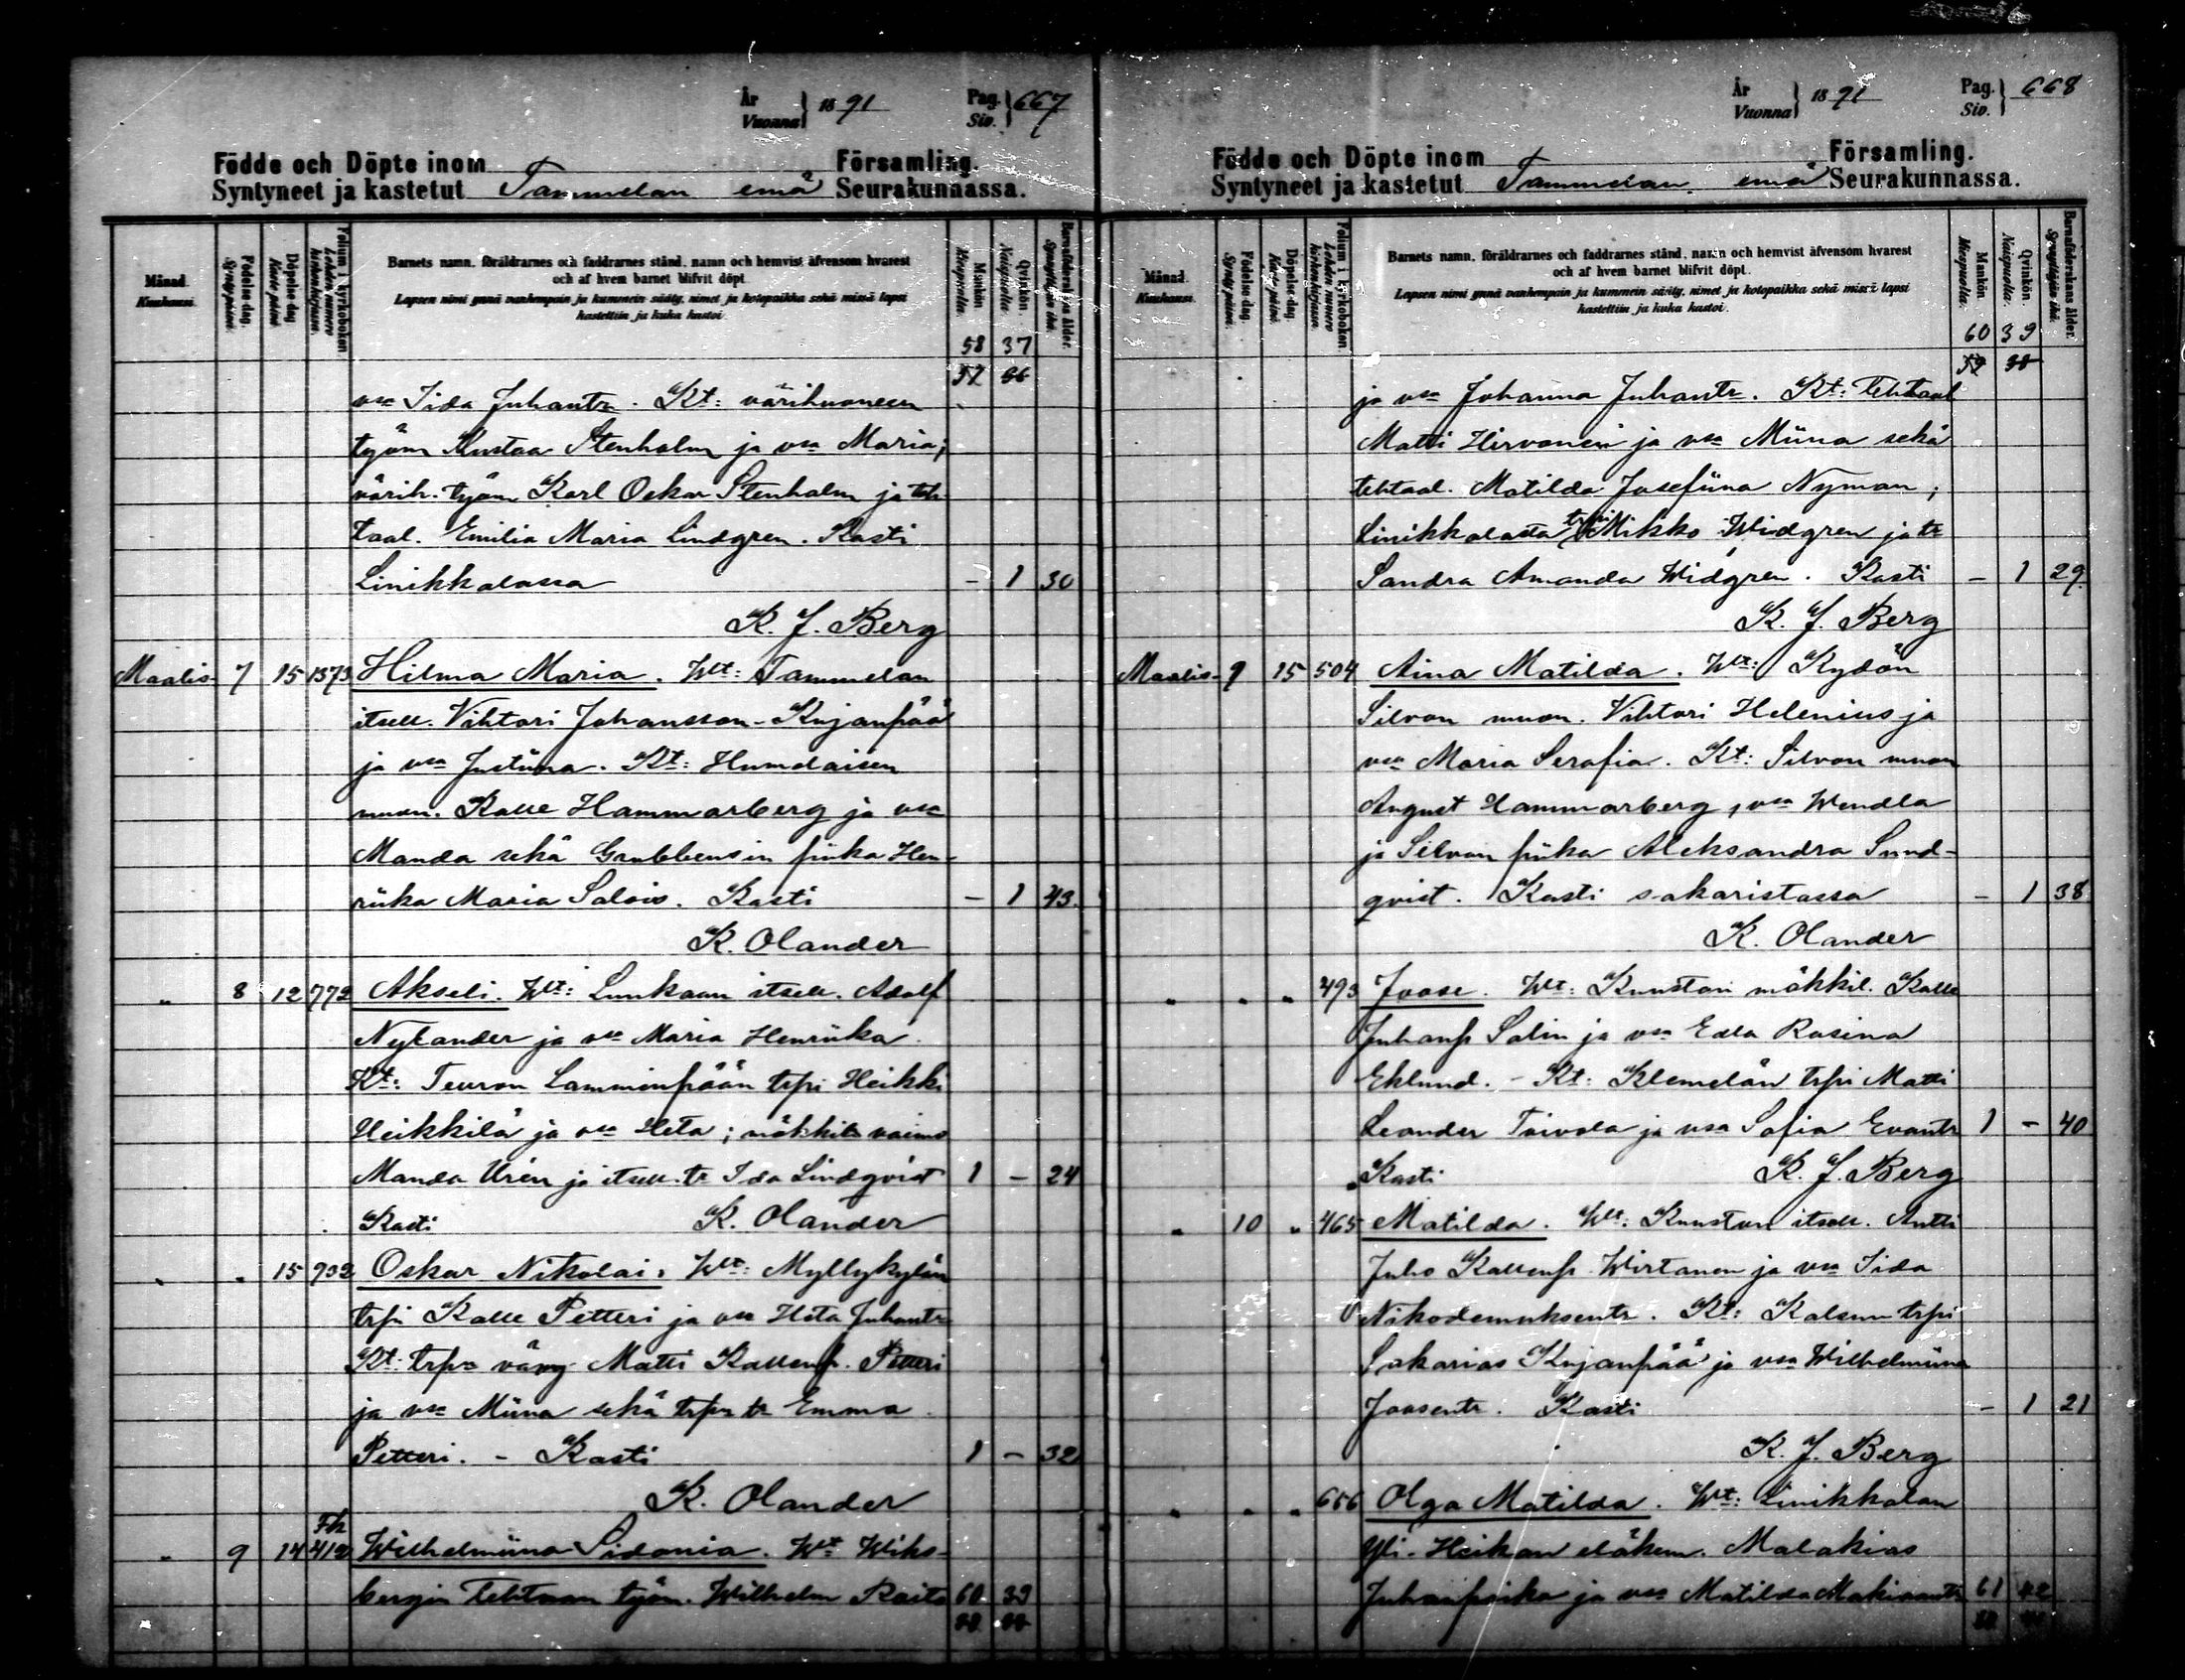 År
Vuonna } 1891 Pag.
Siv. } 667
Födde och Döpte inom Församling.
Syntyneet ja kastetut Tammelan emä Seurakunnassa.
Månad. Kuukausi.
Födelse-dag. Syntypäivä.
Döpelse-dag. Kaste-päivä.
Folium i kyrkoboken. Lehden numero kirkonkirjassa.
Barnets namn, föräldrarnes och faddrarnes stånd, namn och hemvist äfvensom hvarest
och af hvem barnet blifvit döpt.
Lapsen nimi ynnä vanhempain ja kummein sääty, nimet ja kotopaikka sekä missä lapsi
kastettiin ja kuka kastoi.
Mankön. Miespuolia.
Qvinkön. Naispuolia.
Barnaföderskans ålder. Synnyttäjän ikä.
58 37
57 36
vsa Iida Juhantr. Kt: värihuoneen
työm Kustaa Stenholm ja vsa Maria;
värih. työm Karl Oskar Stenholm ja teh
taal. Emilia Maria Lindgren. Kasti
Linikkalassa – 1 30
K. J. Berg
Maalis- 7 15 1373 Hilma Maria. Wt: Tammelan
itsell. Vihtori Johansson-Kujanpää
ja vsa Justiina. Kt: Humelaisen
muon. Kalle Hammarberg ja vsa
Manda sekä Grubbensin piika Hen-
riika Maria Salois. Kasti – 1 43
K. Olander
" 8 12 772 Akseli. Wt: Lunkaan itsell. Adolf
Nylander ja vsa Maria Henriika.
Kt: Teuron Lamminpään trpi Heikki
Heikkilä ja vsa Heta; mökkil. vaimo
Manda Urén ja itsell. tr Ida Lindqvist 1 – 24
Kasti K. Olander
" " 15 932 Oskar Nikolai. Wt: Myllykylän
trpi Kalle Petteri ja vsa Heta Juhantr
Kt: trpn vävy Matti Kallenp. Petteri
ja vsa Miina sekä trpn tr Emma
Petteri. – Kasti 1 – 32
K. Olander
Fh
" 9 14 412 Wilhelmiina Sidonia. Wt Wiks-
bergin tehtaan työm. Wilhelm Raito 60 39
År
Vuonna } 1891 Pag.
Siv. } 668
Födde och Döpte inom Församling.
Syntyneet ja kastetut Tammelan emä Seurakunnassa.
Månad. Kuukausi.
Födelse-dag. Syntypäivä.
Döpelse-dag. Kaste-päivä.
Folium i kyrkoboken. Lehden numero kirkonkirjassa.
Barnets namn, föräldrarnes och faddrarnes stånd, namn och hemvist äfvensom hvarest
och af hvem barnet blifvit döpt.
Lapsen nimi ynnä vanhempain ja kummein sääty, nimet ja kotopaikka sekä missä lapsi
kastettiin ja kuka kastoi.
Mankön. Miespuolia.
Qvinkön. Naispuolia.
Barnaföderskans ålder. Synnyttäjän ikä.
60 39
59 38
ja vsa Johanna Juhantr. Kt: Tehtaal
Matti Hirvonen ja vsa Miina sekä
tehtaal. Matilda Josefiina Nyman;
Linikkalasta trpi Mikko Widgren ja tr
Sandra Amanda Widgren. Kasti – 1 29
K. J. Berg
Maalis- 9 15 504 Aina Matilda. Wt: Kydön
Silvon muon. Vihtori Helenius ja
vsa Maria Serafia. Kt: Silvon muon
August Hammarberg, vsa Wendla
ja Silvon piika Aleksandra Sund-
qvist. Kasti sakaristassa – 1 38
K. Olander
" " " 493 Joose. Wt: Kuuston mökkil. Kalle
Juhanp Salin ja vsa Edla Rosina
Eklund. – Kt: Klemelän trpi Matti
Leander Toivola ja vsa Sofia Evantr 1 – 40
Kasti K. J. Berg
" 10 " 465 Matilda. Wt: Kuuston itsell. Antti
Juho Kallenp Wirtanen ja vsa Iida
Nikodemuksentr. Kt: Kalsun trpi
Sakarias Kujanpää ja vsa Wilhelmiina
Joosentr. Kasti – 1 21
K. J. Berg
" " " 656 Olga Matilda. Wt: Linikkalan
Yli-Heikan eläkem. Malakias
Juhanpoika ja vsa Matilda Makiaantr 61 42